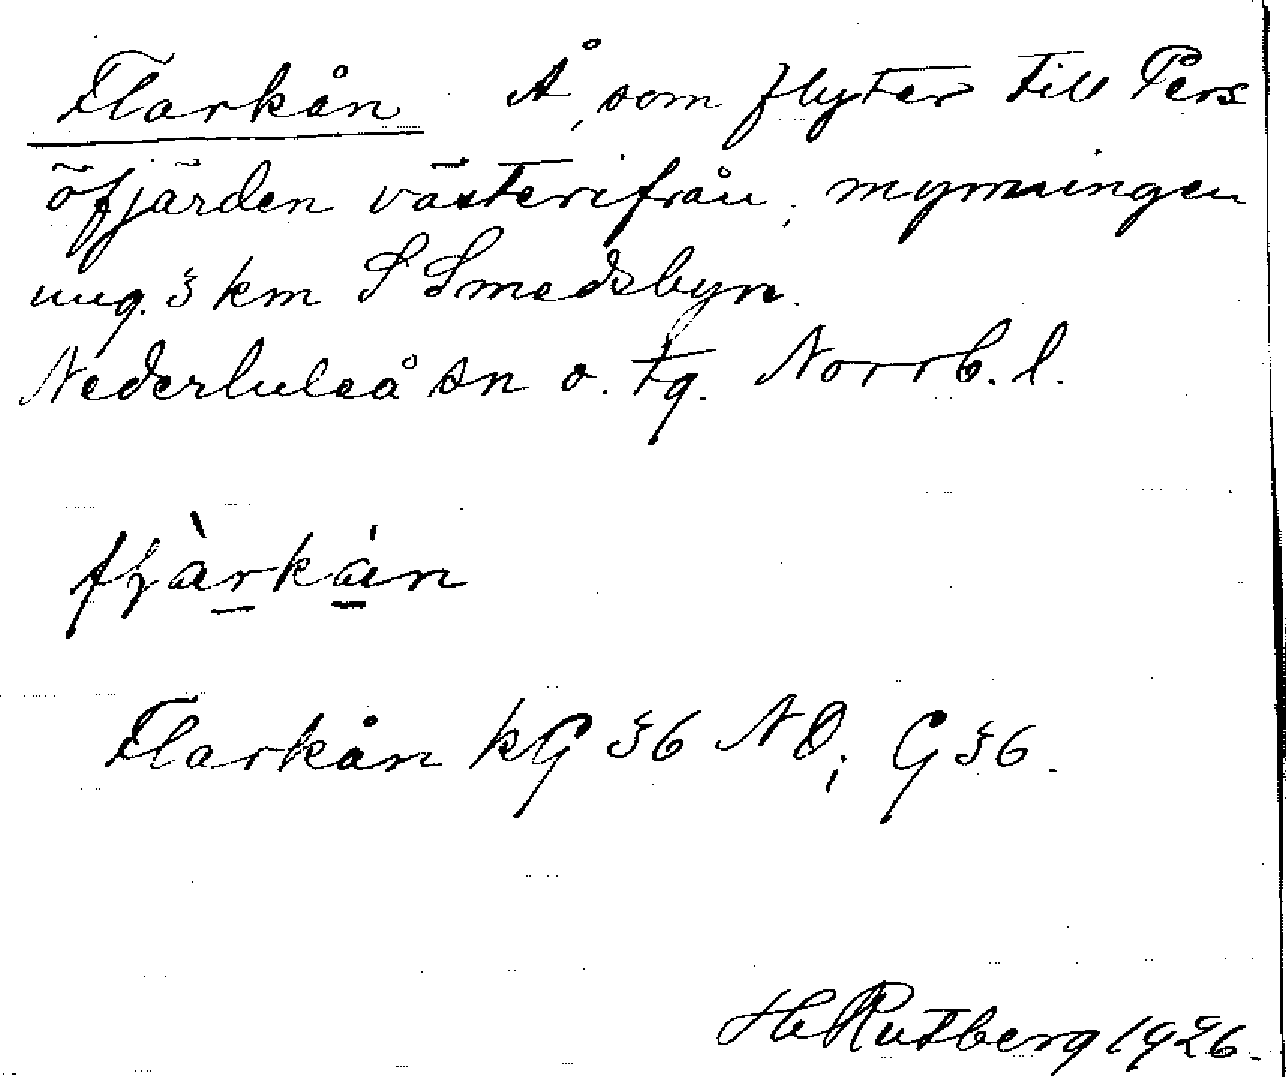 Flarkån Å, som flyter till Pers
öfjärden västerifrån; mynningen
ung. 3 km S Smedsbyn.
Nederluleå sn o. tg. Norrb. l.
Flarkån kG 36 NO; G 36.
H Rutberg 1926.